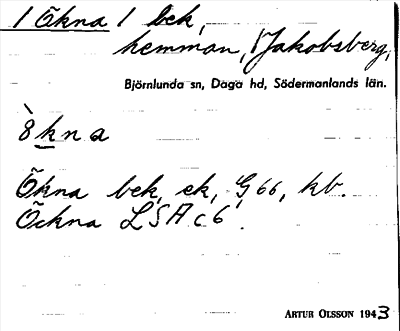 1 Ökna 1 bek,
hemman, 1 Jakobsberg,
Björnlunda sn, Daga hd, Södermanlands län.
`8kna
Ökna bek, ek, G 66, kb.
Öckna LSA c 6.
ARTUR OLSSON 1943